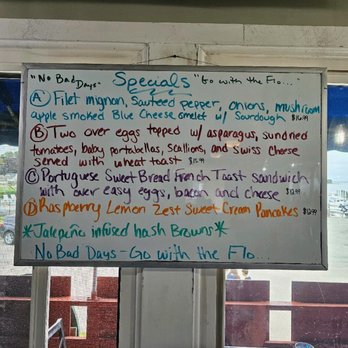 "No Bad Days" Specials "Go with the Flo..."
Ⓐ Filet mignon, Sauteed pepper, onions, mushroom
apple smoked Blue Cheese omelet w/ Sourdough
Ⓑ Two over eggs topped w/ asparagus, sundried
tomatoes, baby portabellas, scallions, and swiss cheese
served with wheat toast
Ⓒ Portuguese Sweet Bread French Toast sandwich
with over easy eggs, bacon and cheese
Ⓓ Raspberry Lemon Zest Sweet Cream Pancakes
*Jalapeño infused hash Browns*
No Bad Days - Go with the Flo...